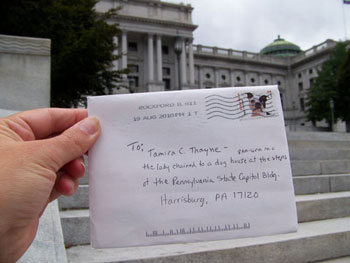 ROCKFORD IL 611
19 AUG 2010 PM 2 T
To: Tamira C. Thayne -
the lady chained to a dog house at the steps
of the Pennsylvania State Capitol Bldg.
Harrisburg, PA 17120